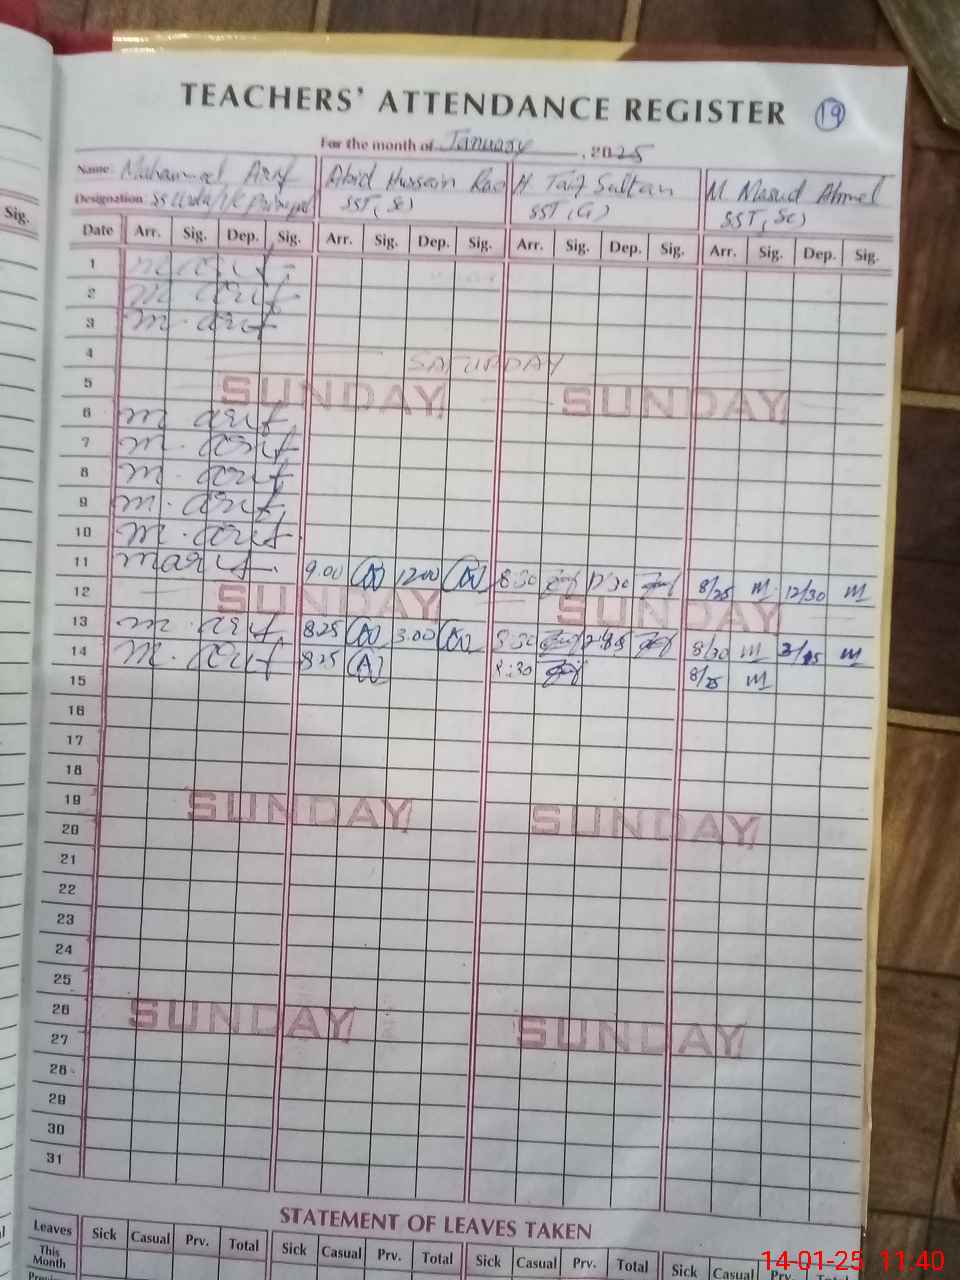 TEACHERS' ATTENDANCE REGISTER 19
For the month of January, 2025
Name: Muhammad Arif Abid Hussain Rao H. Taif Sultan M. Masud Ahmed
Designation: SS SST (Sc) SST (G) SST (Sc)
Sig.
Date Arr. Sig. Dep. Sig. Arr. Sig. Dep. Sig. Arr. Sig. Dep. Sig. Arr. Sig. Dep. Sig.
1 m. arif
2 m. arif
3 m. arif
4 SATURDAY
5 SUNDAY SUNDAY
6 m arif
7 m. arif
8 m. arif
9 m. arif
10 m. arif
11 m arif 9.00 12.00 8:30 12:30 8/25 M 12/30 M
12 SUNDAY SUNDAY
13 m. arif 8.25 3.00 8:30 8/30 M M
14 m. arif 8.25 8:30 8/25 M
15
16
17
18
19 SUNDAY SUNDAY
20
21
22
23
24
25
26 SUNDAY SUNDAY
27
28
29
30
31
STATEMENT OF LEAVES TAKEN
Leaves Sick Casual Prv. Total Sick Casual Prv. Total Sick Casual Prv. Total Sick Casual
This Month
14-01-25 11:40